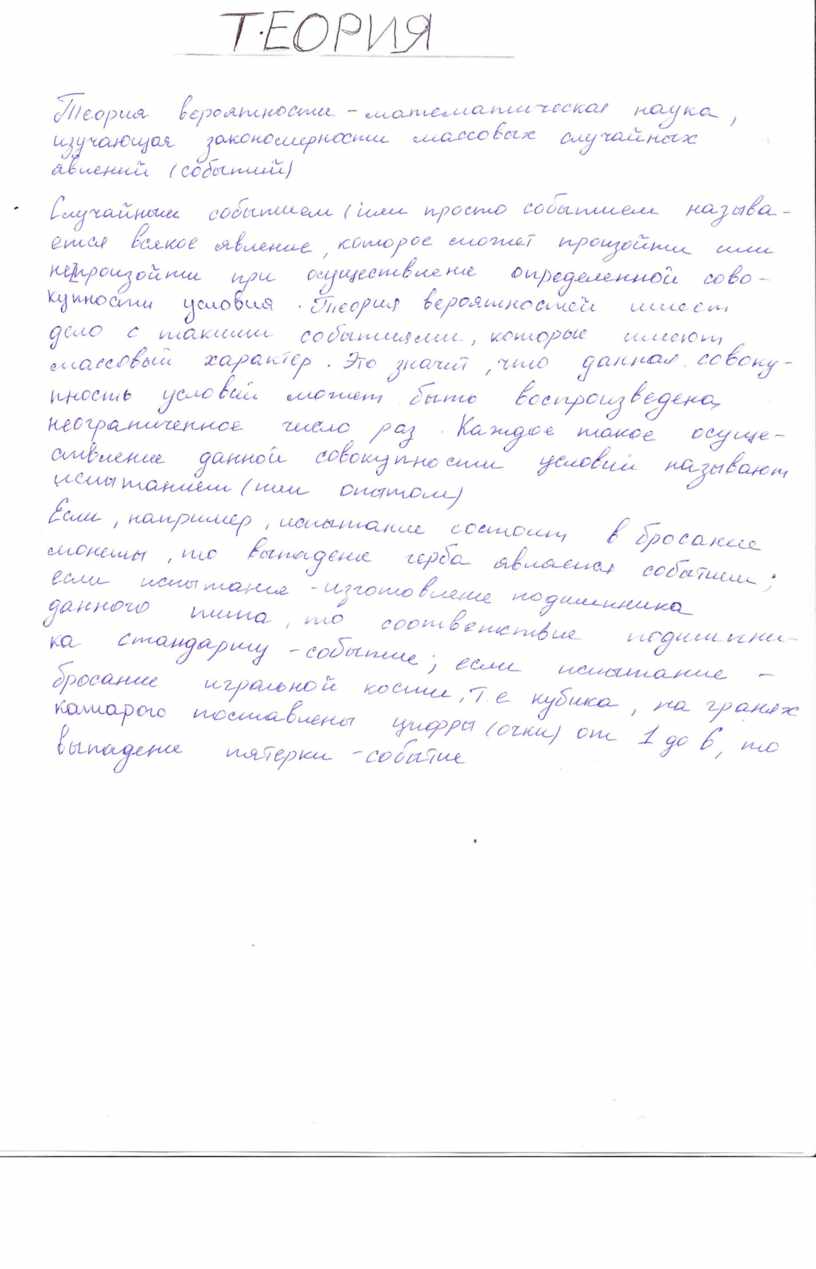 Т.ЕОРИЯ
Теория вероятности - математическая наука,
изучающая закономерности массовых случайных
явлений (событий)
Случайным событием (или просто событием называ-
ется всякое явление, которое может произойти или
не произойти при осуществление определенной сово-
купности условия. Теория вероятностей имеет
дело с такими событиями, которые имеют
массовый характер. Это значит, что данная совоку-
пность условий может быть воспроизведена,
неограниченное число раз. Каждое такое осуще-
ствление данной совокупности условий называют
испытанием (или опытом)
Если, например, испытание состоит в бросание
монеты, то выпадение герба является событием;
если испытания - изготовление подшипника
данного типа, то соответствие подшипни-
ка стандарту - событие; если испытание -
бросание игральной кости, т.е кубика, на гранях
катарого поставлены цифры (очки) от 1 до 6, то
выпадение пятерки - событие